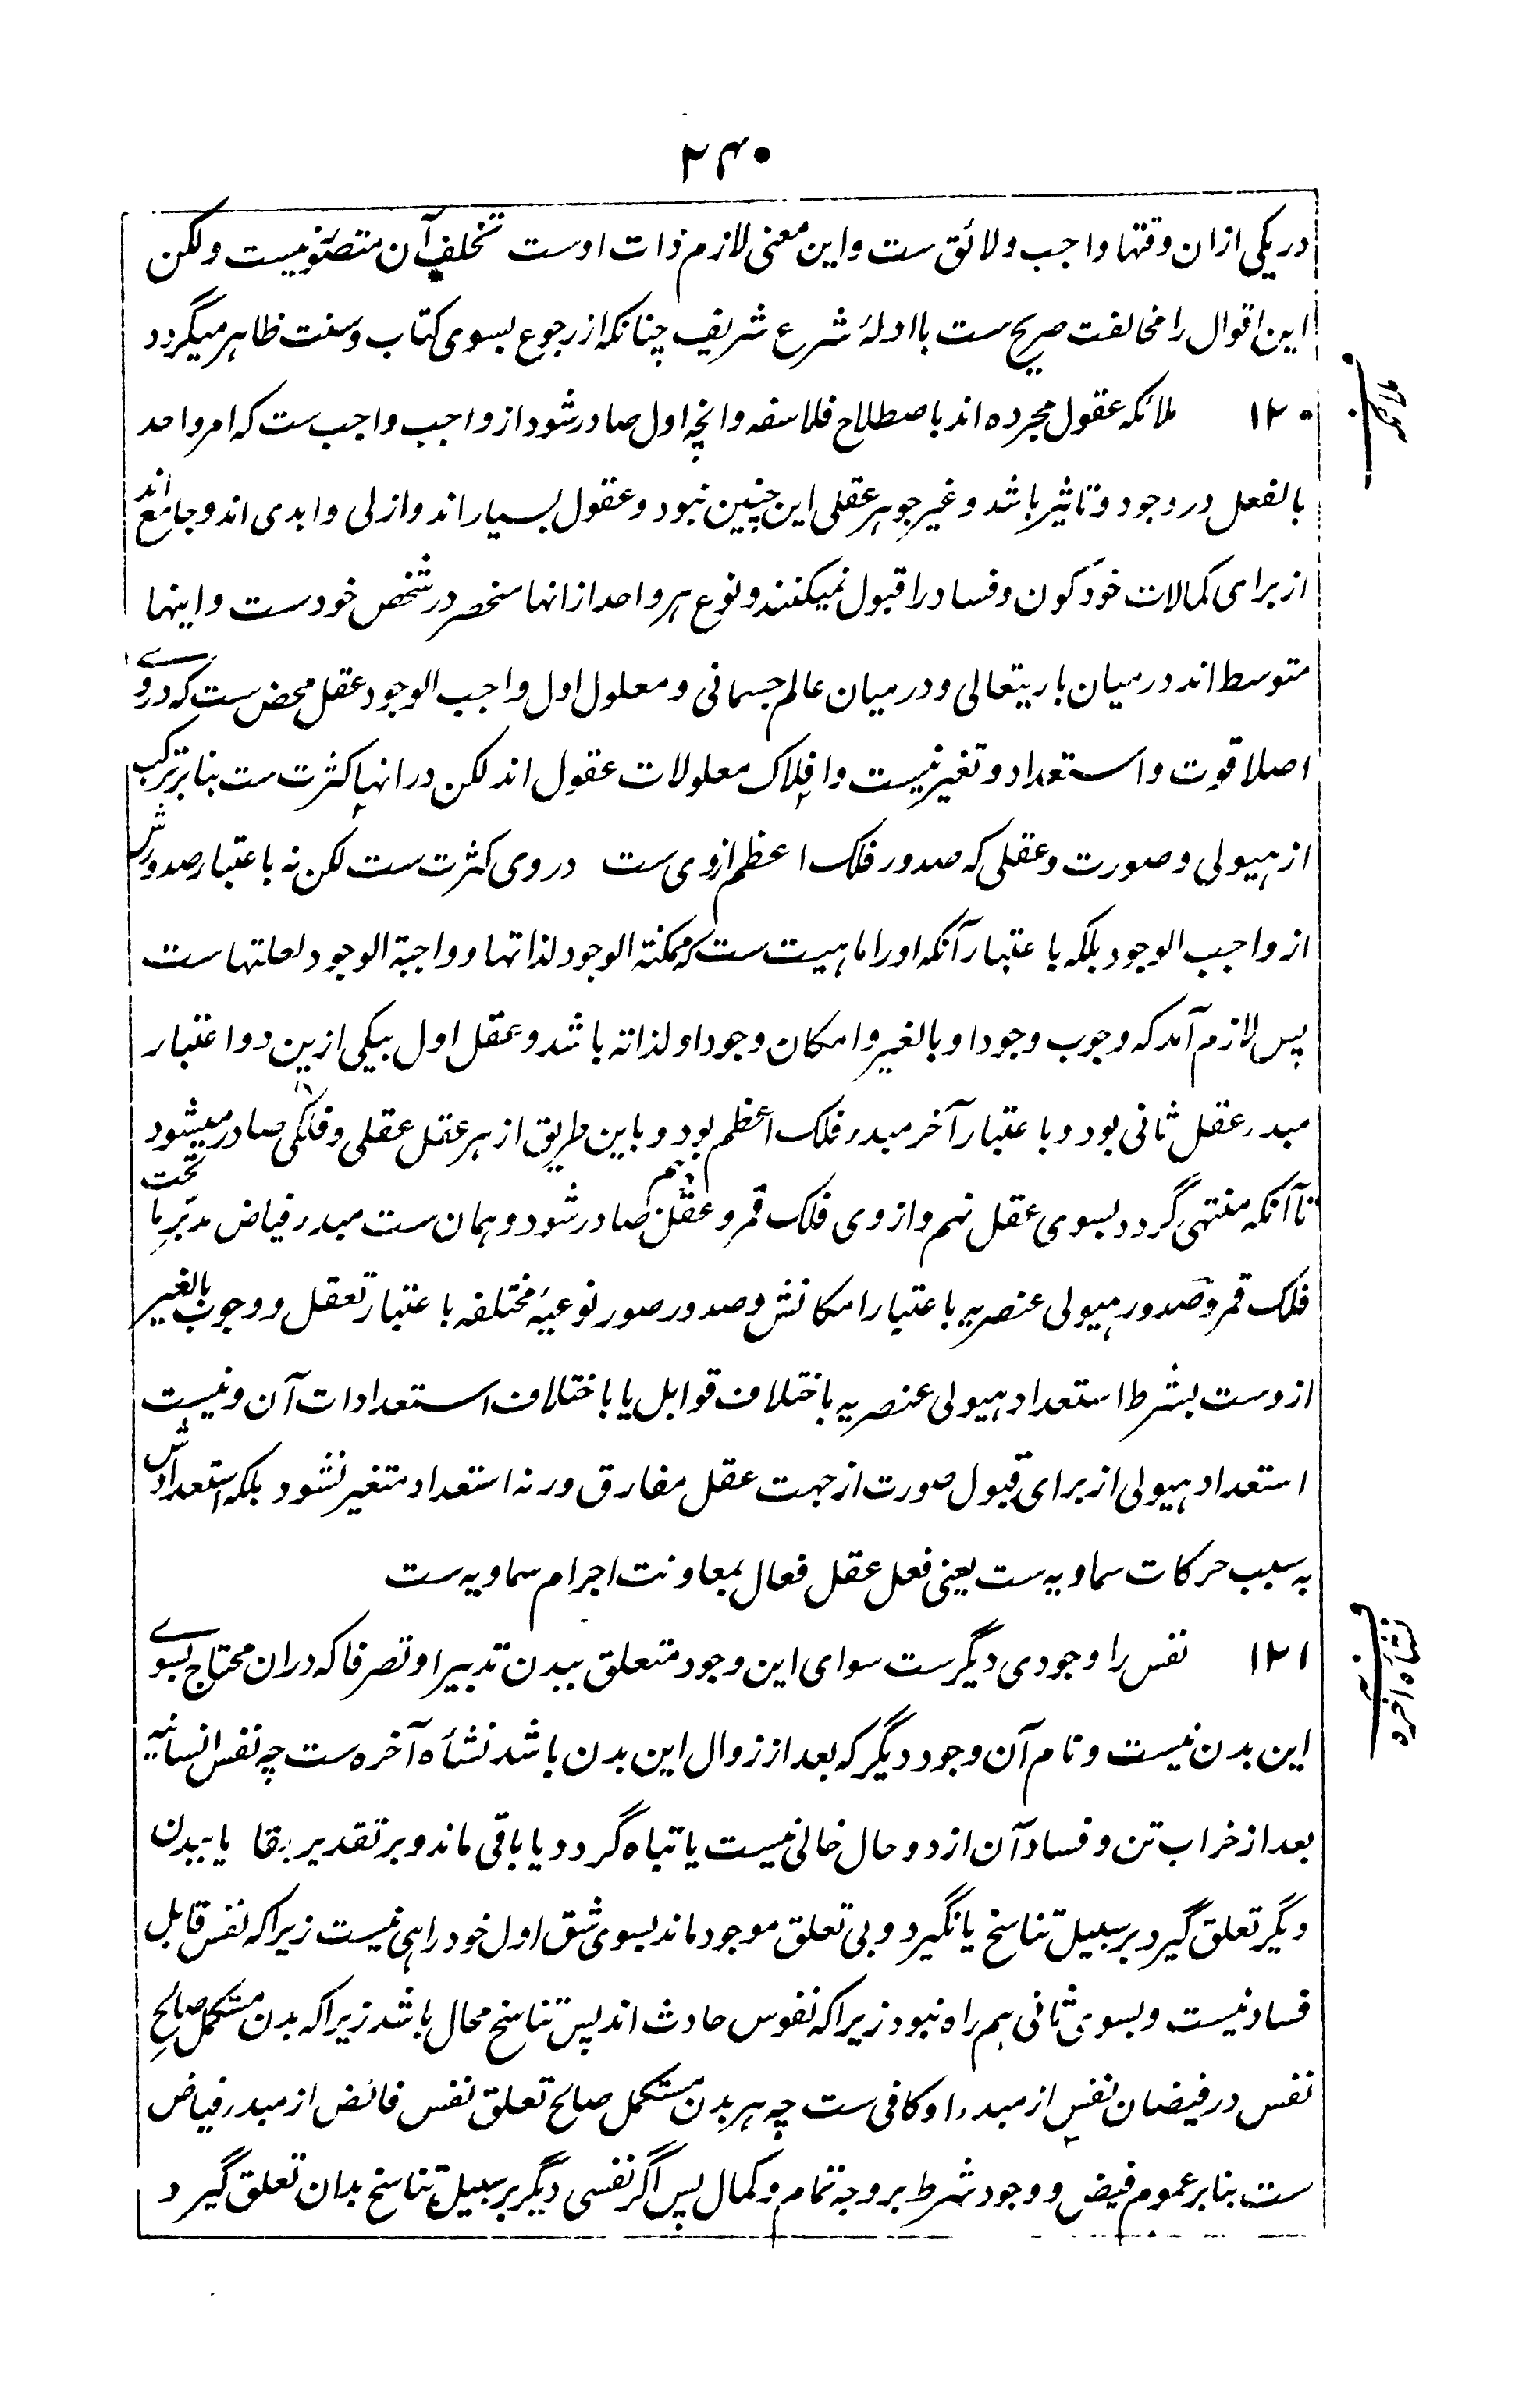 ۲۴۰
در یکی ازان وقتها واجب ولائق ست و این معنی لازم ذات اوست تخلف آن متصور نیست ولکن
این اقوال را مخالفت صریح ست با ادلهٔ شرع شریف چنانکه از رجوع بسوی کتاب و سنت ظاهر میگردد
۱۲۰ ملائکه عقول مجرده اند باصطلاح فلاسفه وانچه اول صادر شود از واجب واجب ست که امر واحد
بالفعل در وجود و تاثیر باشد و غیر جوهر عقلی این چنین نبود و عقول بسیار اند و ازلی و ابدی اند و جامع اند
از برای کمالات خود کون و فساد را قبول نمیکنند و نوع هر واحد ازانها منحصر در شخص خودست و اینها
متوسط اند در میان باریتعالی و در میان عالم جسمانی و معلول اول واجب الوجود عقل محض ست که دروے
اصلا قوت و استعداد و تغیر نیست و افلاک معلولات عقول اند لکن درانها کثرت ست بنابر ترکب
از هیولی و صورت و عقلی که صدور فلک اعظم ازوی ست دروی کثرت ست لکن نه باعتبار صدورش
از واجب الوجود بلکه باعتبار آنکه او را ماهیت ست که ممکنة الوجود لذاتها و واجبة الوجود لعلتهاست
پس لازم آمد که وجوب وجود او بالغیر و امکان وجود او لذاته باشد و عقل اول بیکی ازین دو اعتبار
مبدء عقل ثانی بود و باعتبار آخر مبدء فلک اعظم بود و باین طریق از هر عقل عقلی و فلکی صادر میشود
تا آنکه منتهی گردد بسوی عقل نهم و ازوی فلک قمر و عقل دهم صادر شود و همان ست مبدء فیاض مدبر ما تحت
فلک قمر و صدور هیولی عنصریه باعتبار امکانش و صدور صور نوعیهٔ مختلفه باعتبار تعقل و وجوب بالغیر
ازوست بشرط استعداد هیولی عنصریه باختلاف قوابل یا باختلاف استعدادات آن و نیست
استعداد هیولی از برای قبول صورت از جهت عقل مفارق ورنه استعداد متغیر نشود بلکه استعدادش
به سبب حرکات سماویه ست یعنی فعل عقل فعال بمعاونت اجرام سماویه ست
۱۲۱ نفس را وجودی دیگرست سوای این وجود متعلق ببدن تدبیرا و تصرفا که دران محتاج بسوے
این بدن نیست و نام آن وجود دیگر که بعد از زوال این بدن باشد نشأه آخره ست چه نفس انسانیه
بعد از خراب تن و فساد آن از دو حال خالی نیست یا تباه گردد یا باقی ماند و بر تقدیر بقا یا ببدن
دیگر تعلق گیرد بر سبیل تناسخ یا نگیرد و بی تعلق موجود ماند بسوی شق اول خود راهی نیست زیرا که نفس قابل
فساد نیست و بسوی ثانی هم راه نبود زیرا که نفوس حادث اند پس تناسخ محال باشد زیرا که بدن مستکمل صالح
نفس در فیضان نفس از مبدء او کافی ست چه هر بدن مستکمل صالح تعلق نفس فائض از مبدء فیاض
ست بنابر عموم فیض و وجود شرط بروجه تمام و کمال پس اگر نفسی دیگر بر سبیل تناسخ بدان تعلق گیرد
نشأه آخره